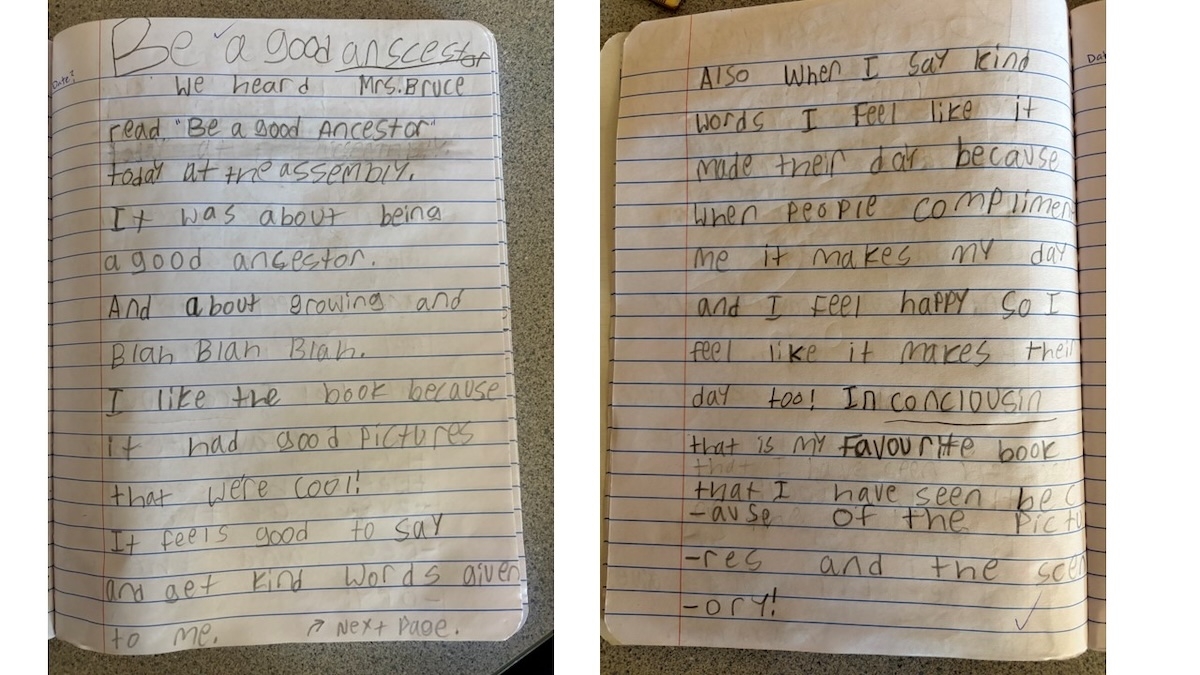 Be a good anscestor
Date:
We heard Mrs.Bruce
read "Be a good Ancestor"
today at the assembly.
It was about being
a good ansestor.
And about growing and
Blah Blah Blah.
I like the book because
it had good pictures
that were cool!
It feels good to say
and get kind words given
to me. ↗ Next Page.
Also When I say kind
words I feel like it
made their day because
when people complimen
me it makes my day
and I feel happy so I
feel like it makes their
day too! In conclousin
that is my favourite book
that I have seen bec
-ause of the pictu
-res and the scen
-ory!
Dat